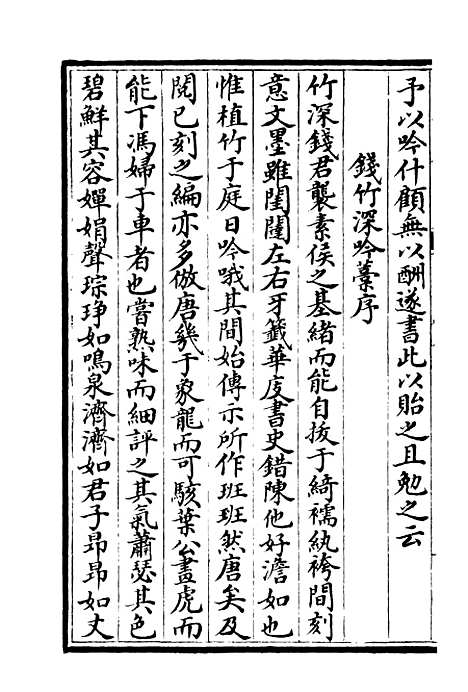 予以吟什顧無以酬遂書此以貽之且勉之云
錢竹深吟藁序
竹深錢君襲素侯之基緒而能自拔于綺襦紈袴間刻
意文墨雖閨闥左右牙籤華庋書史錯陳他好澹如也
惟植竹于庭日吟哦其間始傳示所作班班然唐矣及
閱已刻之編亦多倣唐幾于豢龍而可駭葉公畫虎而
能下馮婦于車者也嘗熟味而細評之其氣蕭瑟其色
碧鮮其容嬋娟聲琮琤如鳴泉濟濟如君子昂昂如丈